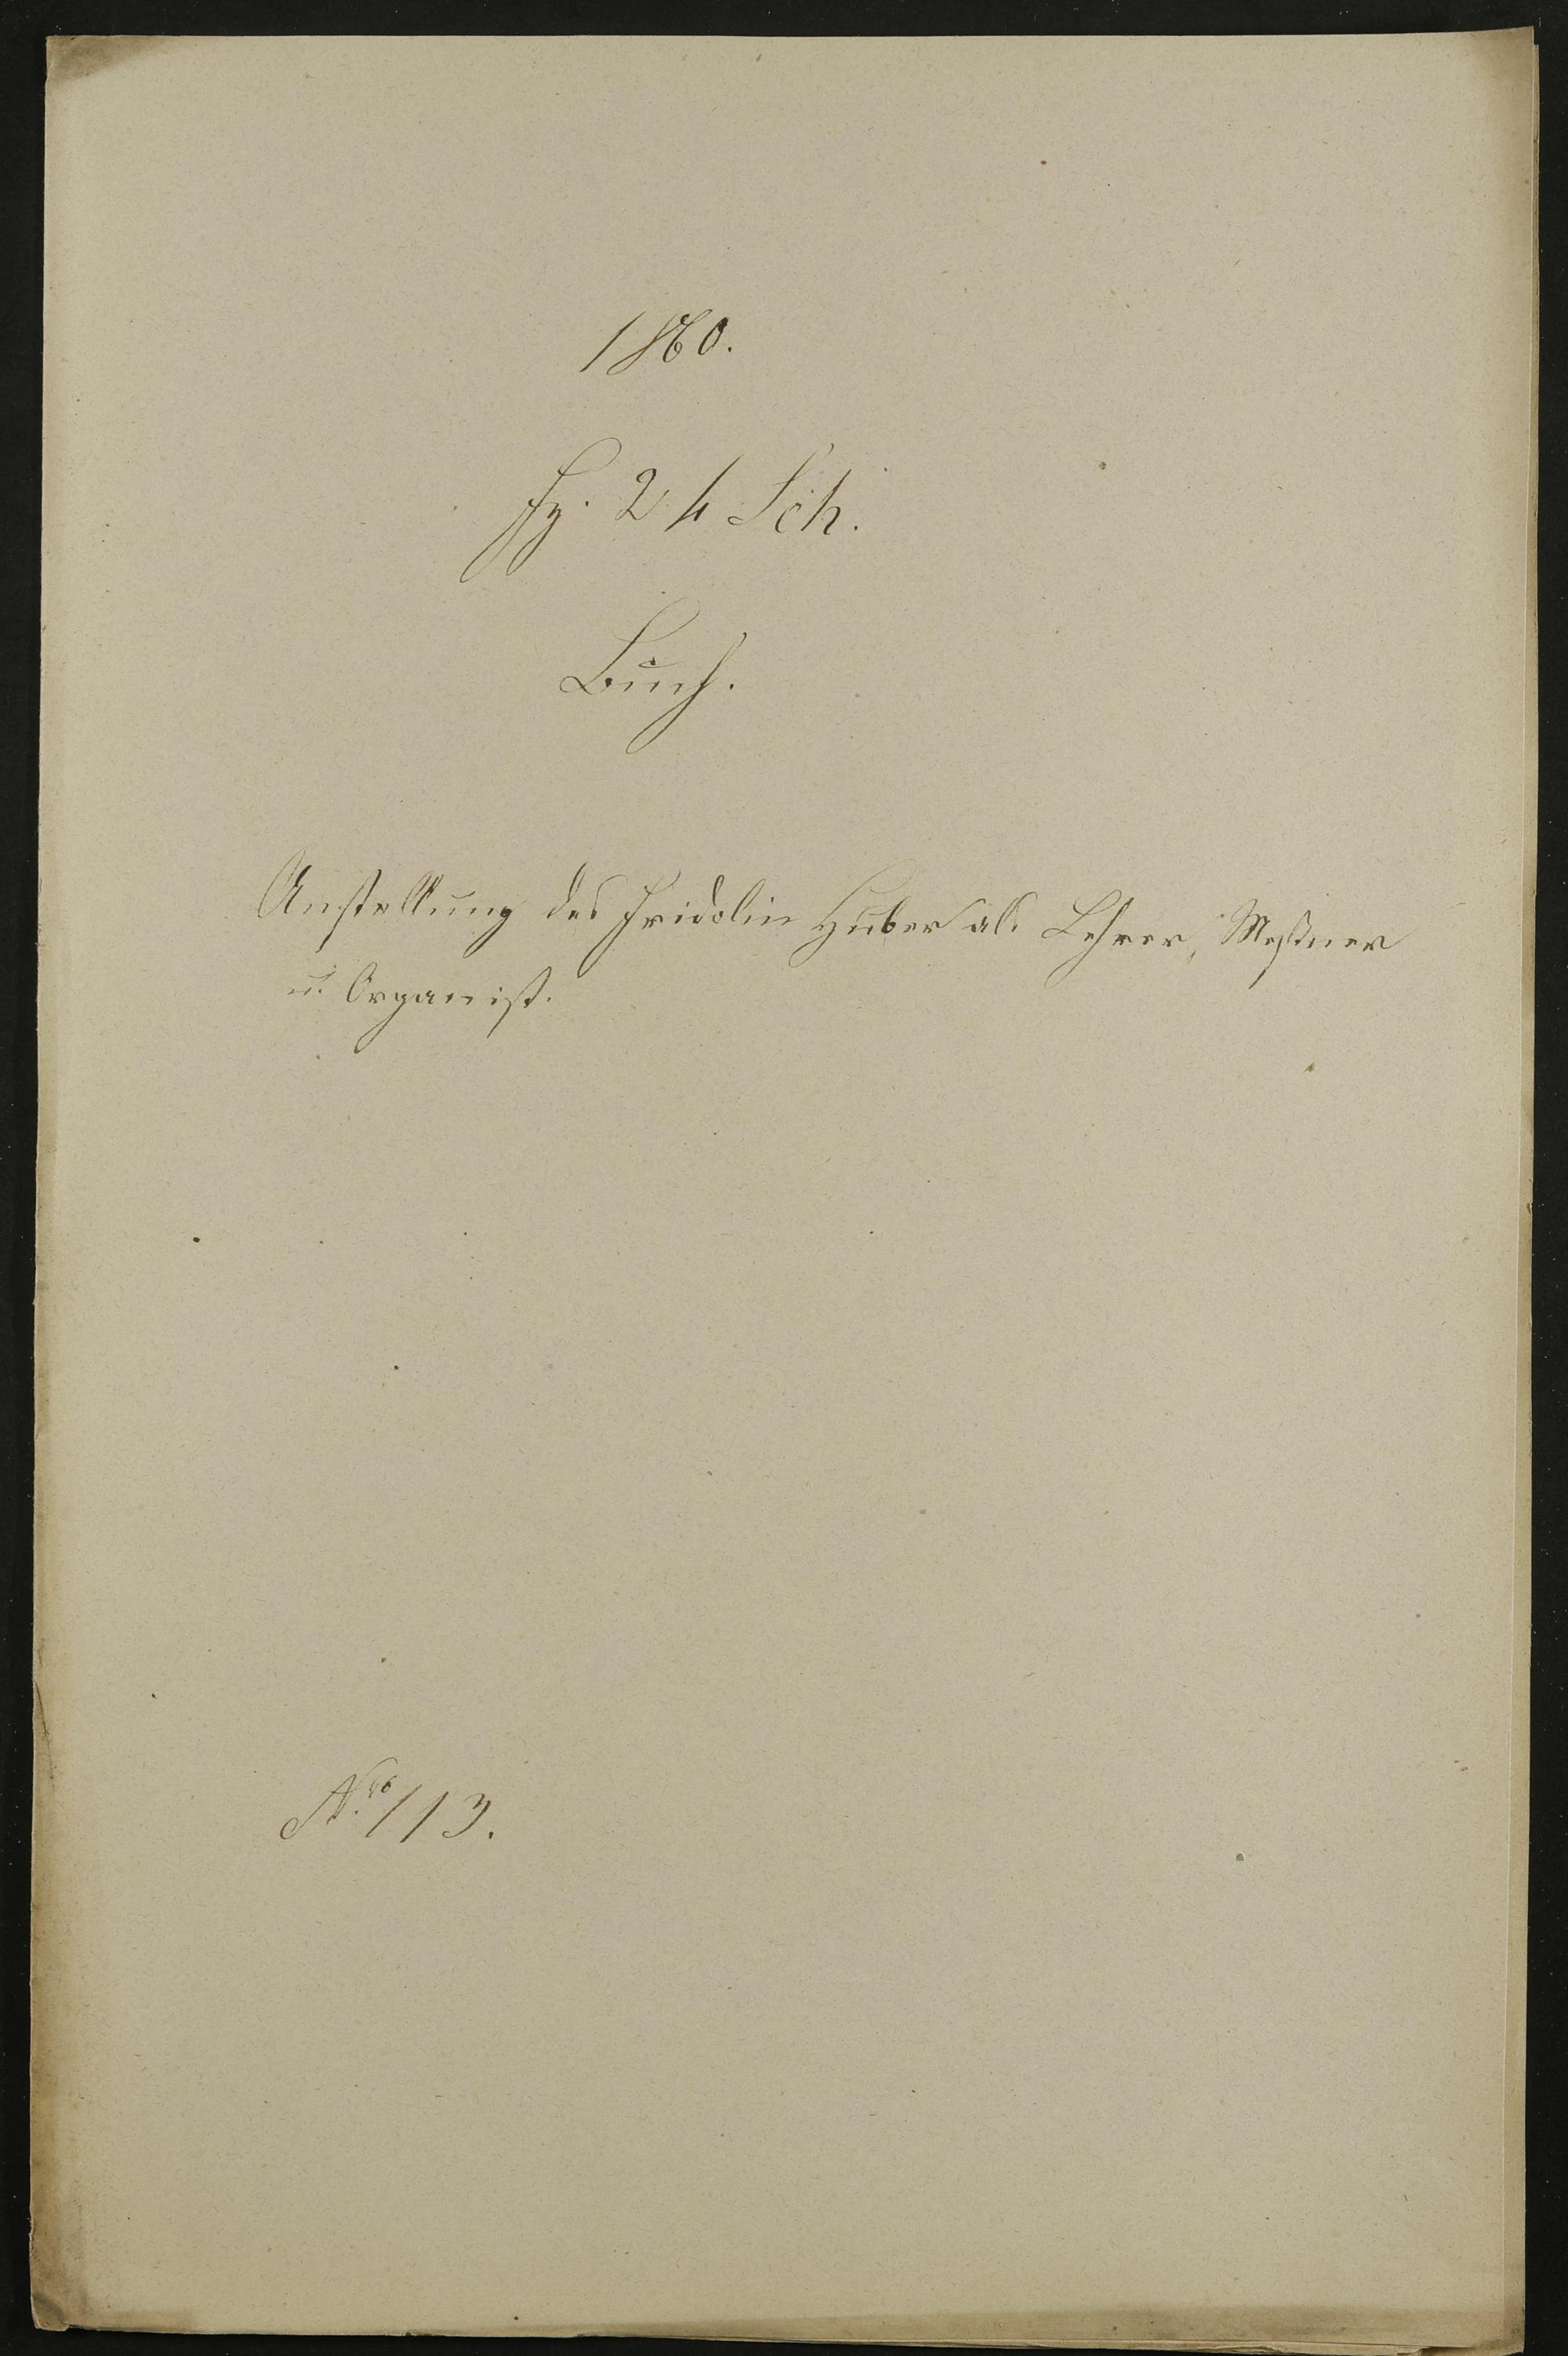 1860.
Fz. 24 Sch.
Buch.
Anstellung des Fridolin Huber als Lehrer, Meßner
u. Organist.
No. 113.